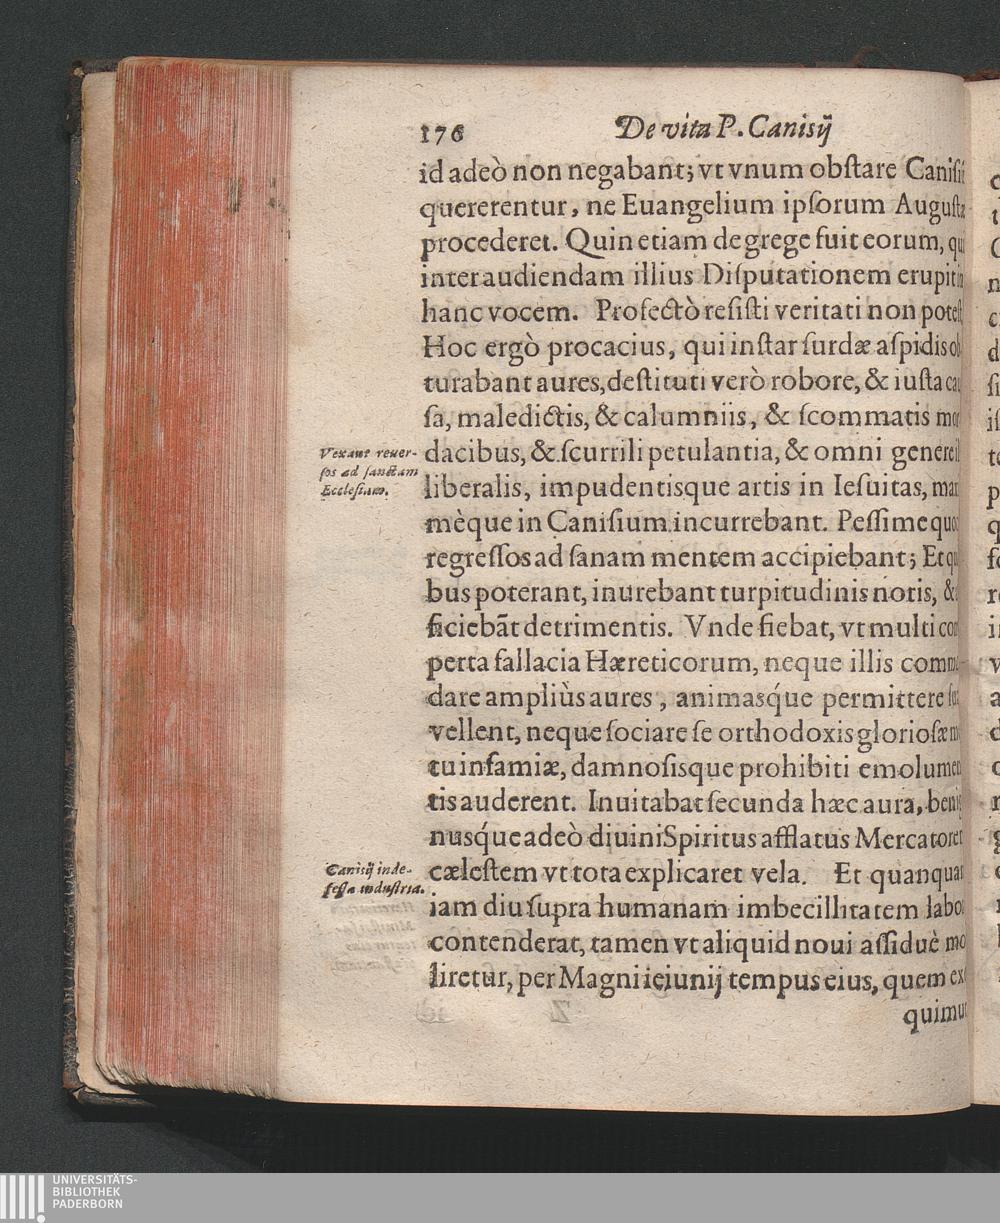 176 De vita P. Canisij
id adeò non negabant; vt vnum obſtare Caniſiū
quererentur, ne Euangelium ipſorum Auguſtæ
procederet. Quin etiam de grege fuit eorum, qui
inter audiendam illius Diſputationem erupit in
hanc vocem. Profectò reſiſti veritati non poteſt.
Hoc ergò procacius, qui inſtar ſurdæ aſpidis ob
turabant aures, deſtituti verò robore, & iuſta cau
ſa, maledictis, & calumniis, & ſcommatis mor
Vexant reuer-
ſos ad ſanctam
Eccleſiam.
dacibus, & ſcurrili petulantia, & omni genere il
liberalis, impudentisque artis in Ieſuitas, maxi
mèque in Caniſium incurrebant. Peſſime quoq
regreſſos ad ſanam mentem accipiebant; Et qui
bus poterant, inurebant turpitudinis notis, &
ficiebāt detrimentis. Vnde fiebat, vt multi com
perta fallacia Hæreticorum, neque illis commo-
dare ampliùs aures, animasq́ue permittere ſuas
vellent, neque ſociare ſe orthodoxis glorioſæ me
tu infamiæ, damnoſisque prohibiti emolumen
tis auderent. Inuitabat ſecunda hæc aura, benig
nusq́ue adeò diuini Spiritus afflatus Mercatorem
Canisij inde-
feſſa induſtria.
cæleſtem vt tota explicaret vela. Et quanquam
iam diu ſupra humanam imbecillitatem labor
contenderat, tamen vt aliquid noui aſſiduè mo
liretur, per Magni ieiunij tempus eius, quem ex
quimur
UNIVERSITÄTS-
BIBLIOTHEK
PADERBORN